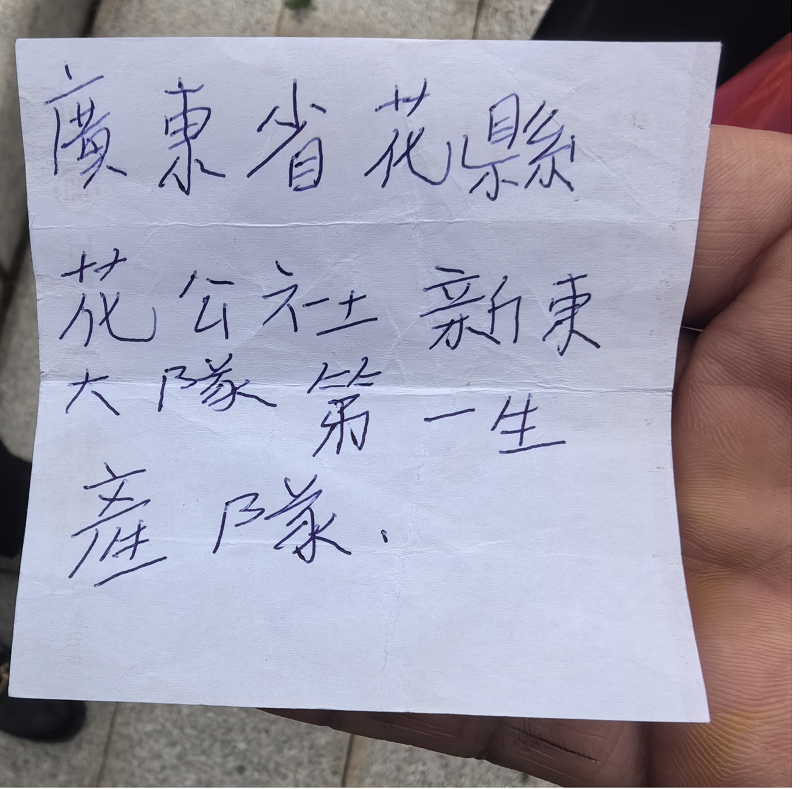 廣東省花縣
花公社新東
大隊第一生
產隊.